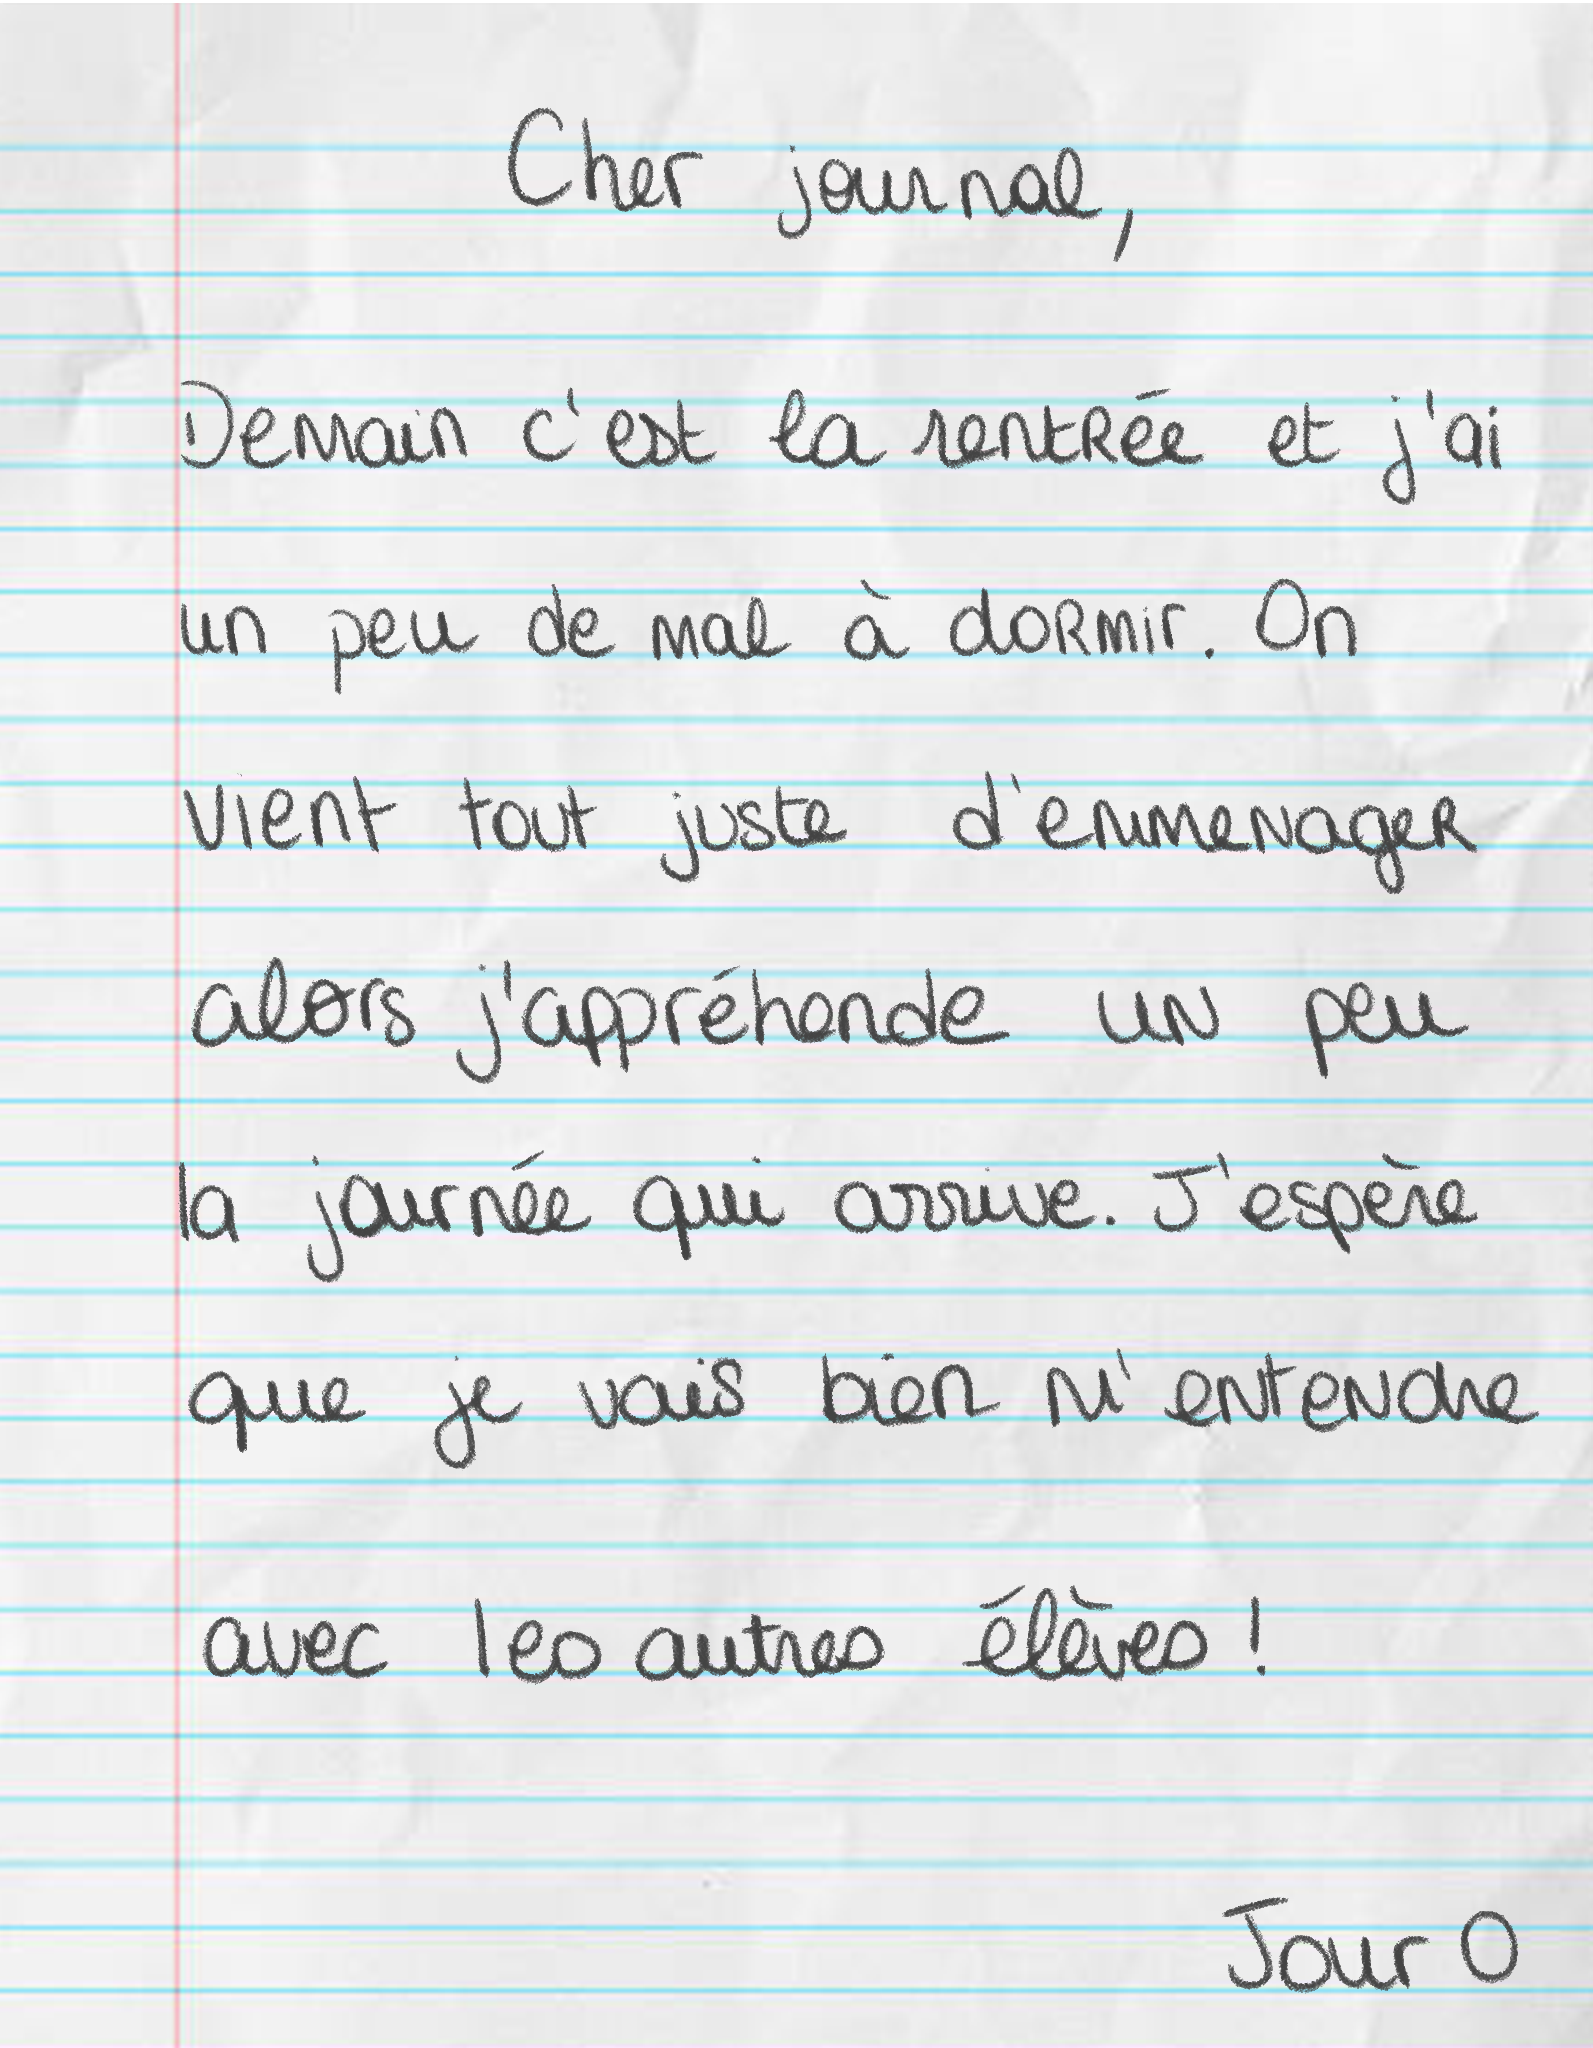 Cher journal,
Demain c'est la rentrée et j'ai
un peu de mal à dormir. On
vient tout juste d'emmenager
alors j'appréhende un peu
la journée qui arrive. J'espère
que je vais bien m'entendre
avec les autres élèves !
Jour 0